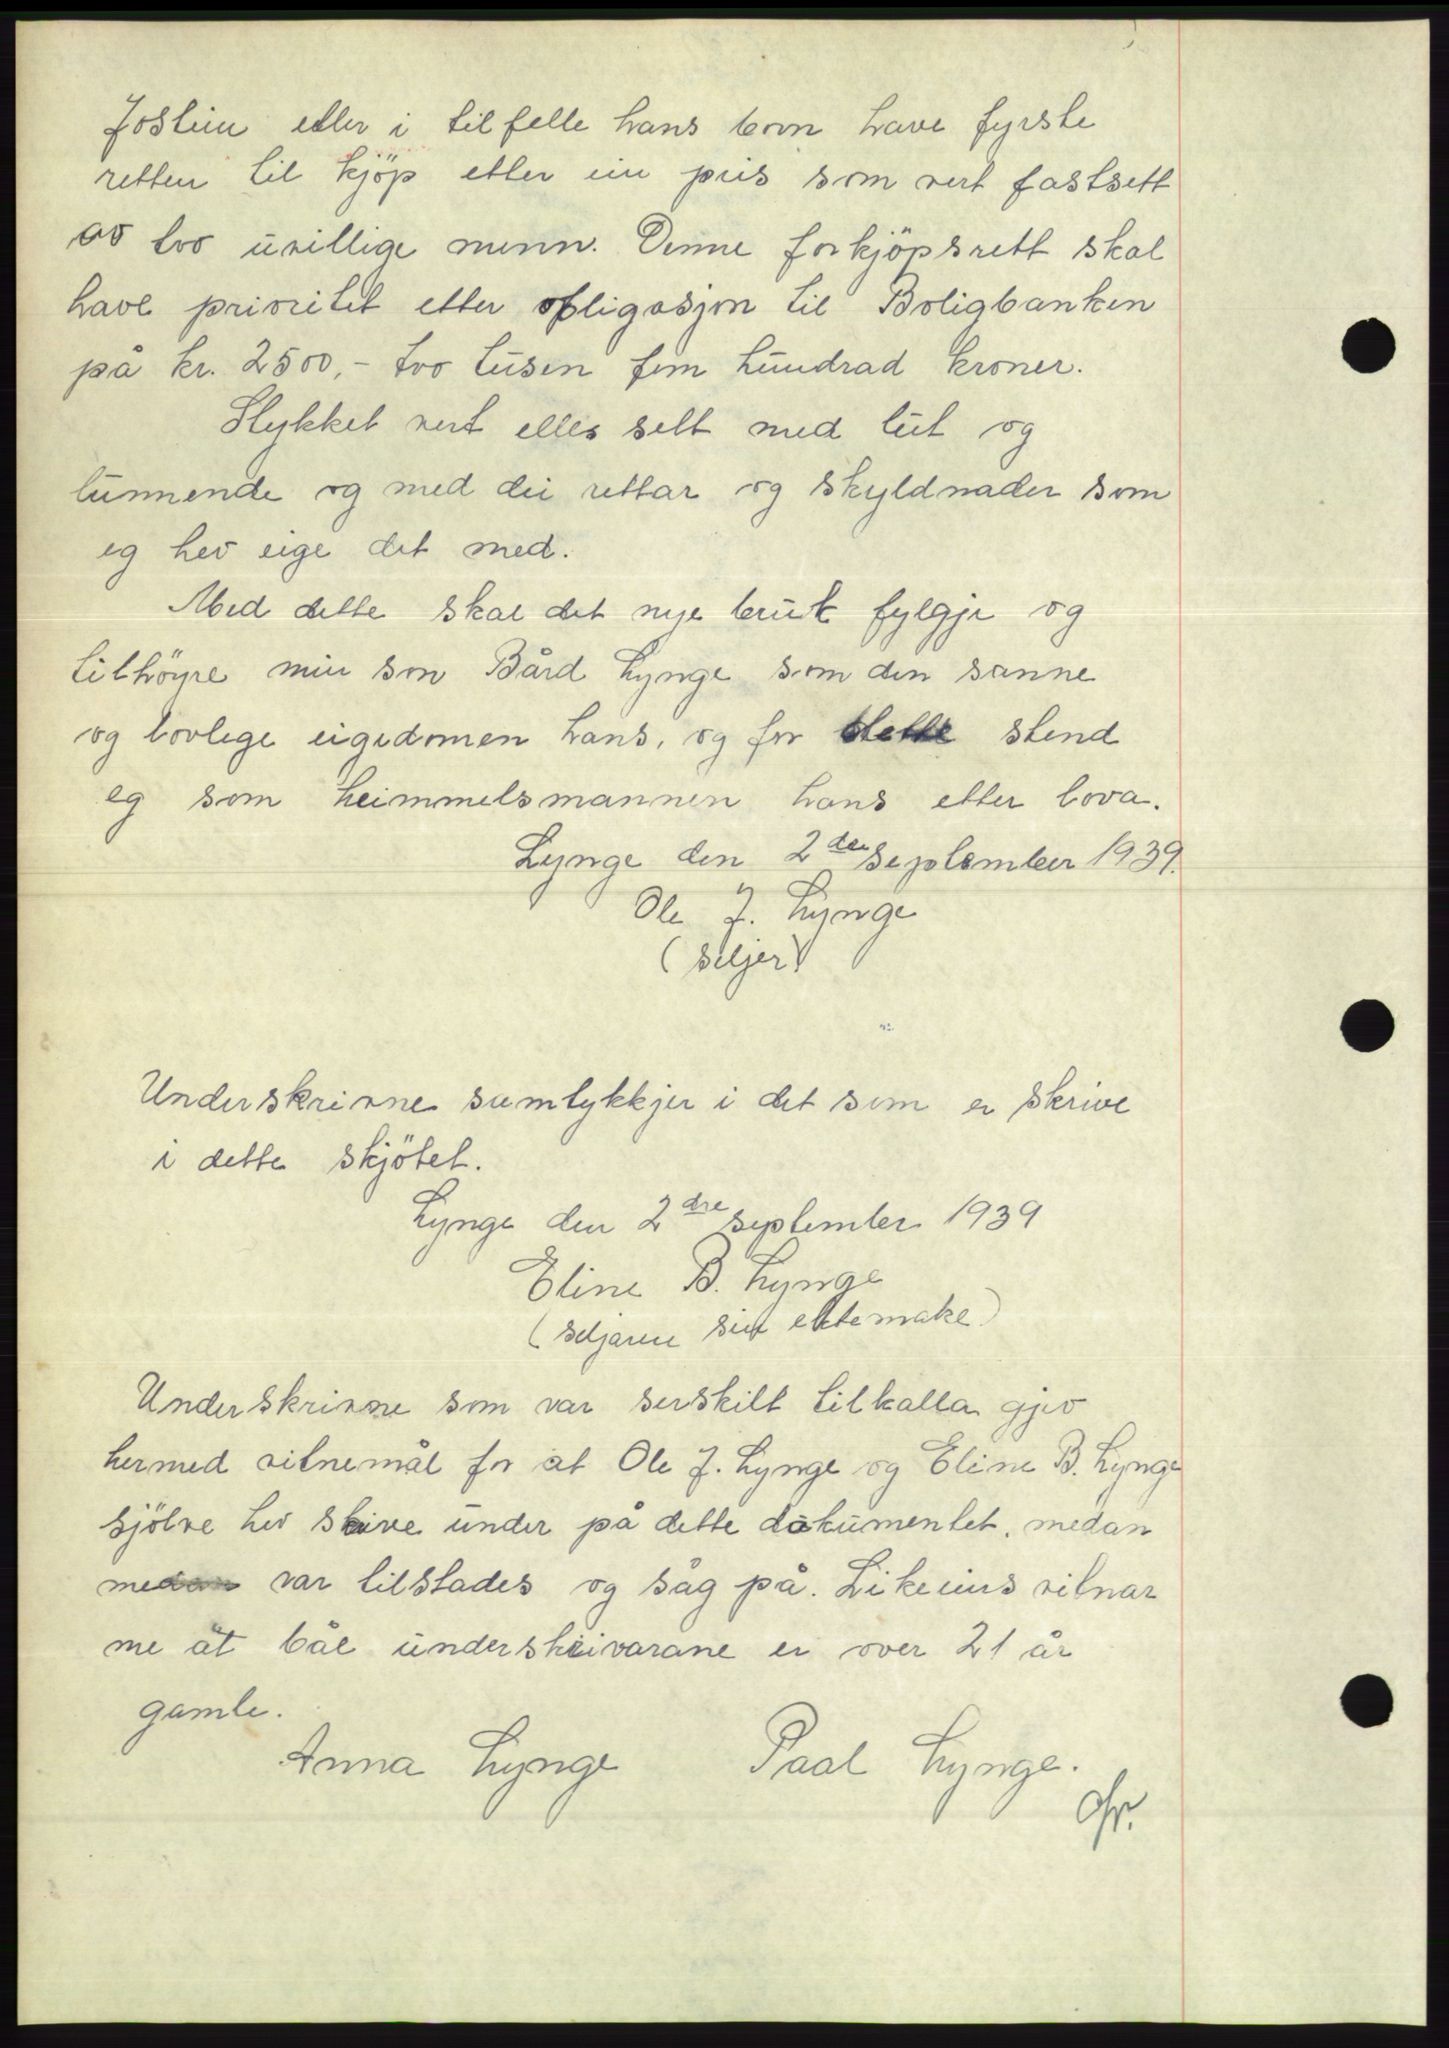 Jostein eller i tilfelle hans born have fyrste
retten til kjöp etter ein pris som vert fastsett
av tvo uvillige menn. Denne forkjöpsrett skal
have prioritet etter obligasjon til Boligbanken
på kr. 2500,- tvo tusen fem hundrad kroner.
Stykket vert elles selt med lut og
lunnende og med dei rettar og skyldnader som
eg hev eige det med.
Med dette skal det nye bruk fylgje og
tilhöyre min son Bård Lynge som den sanne
og lovlege eigedomen hans, og for dette stend
eg som heimmelsmannen hans etter lova.
Lynge den 2den september 1939.
Ole J. Lynge
(seljer)
Underskrivne samtykkjer i det som er skrive
i dette skjötet.
Lynge den 2dre september 1939
Eline B. Lynge
(seljaren sin ektemake)
Underskrivne som var serskilt tilkalla gjev
hermed vitnemål for at Ole J. Lynge og Eline B. Lynge
sjölve hev skrive under på dette dokumentet, medan
me var tilstades og såg på. Likeeins vitnar
me at båe underskrivarane er over 21 år
gamle.
Anna Lynge Paal Lynge.